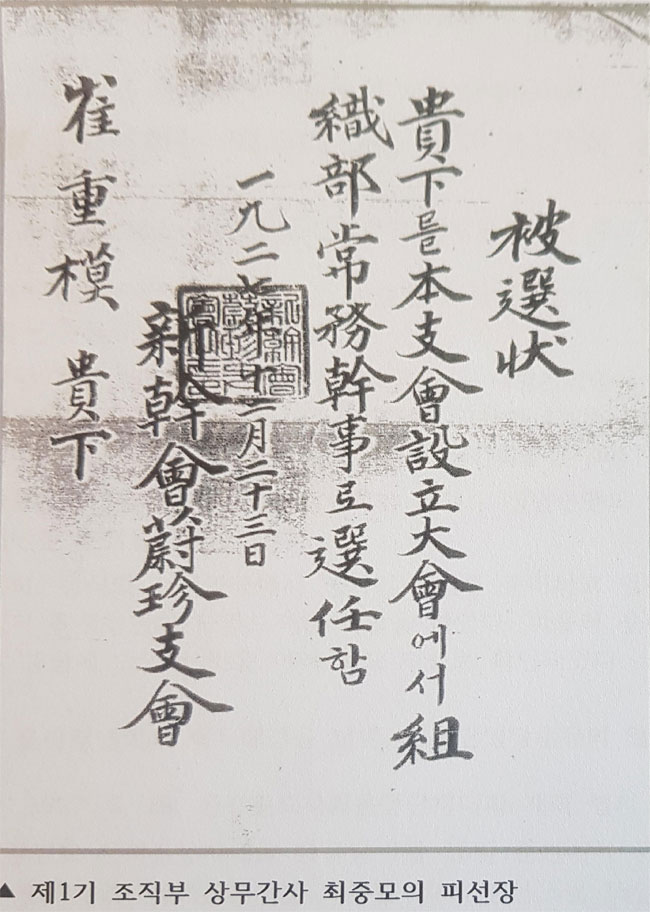 被選狀
貴下를本支會設立大會에서組
織部常務幹事로選任함
一九二七年十二月二十三日
新幹會蔚珍支會
崔重模 貴下
▲ 제1기 조직부 상무간사 최중모의 피선장